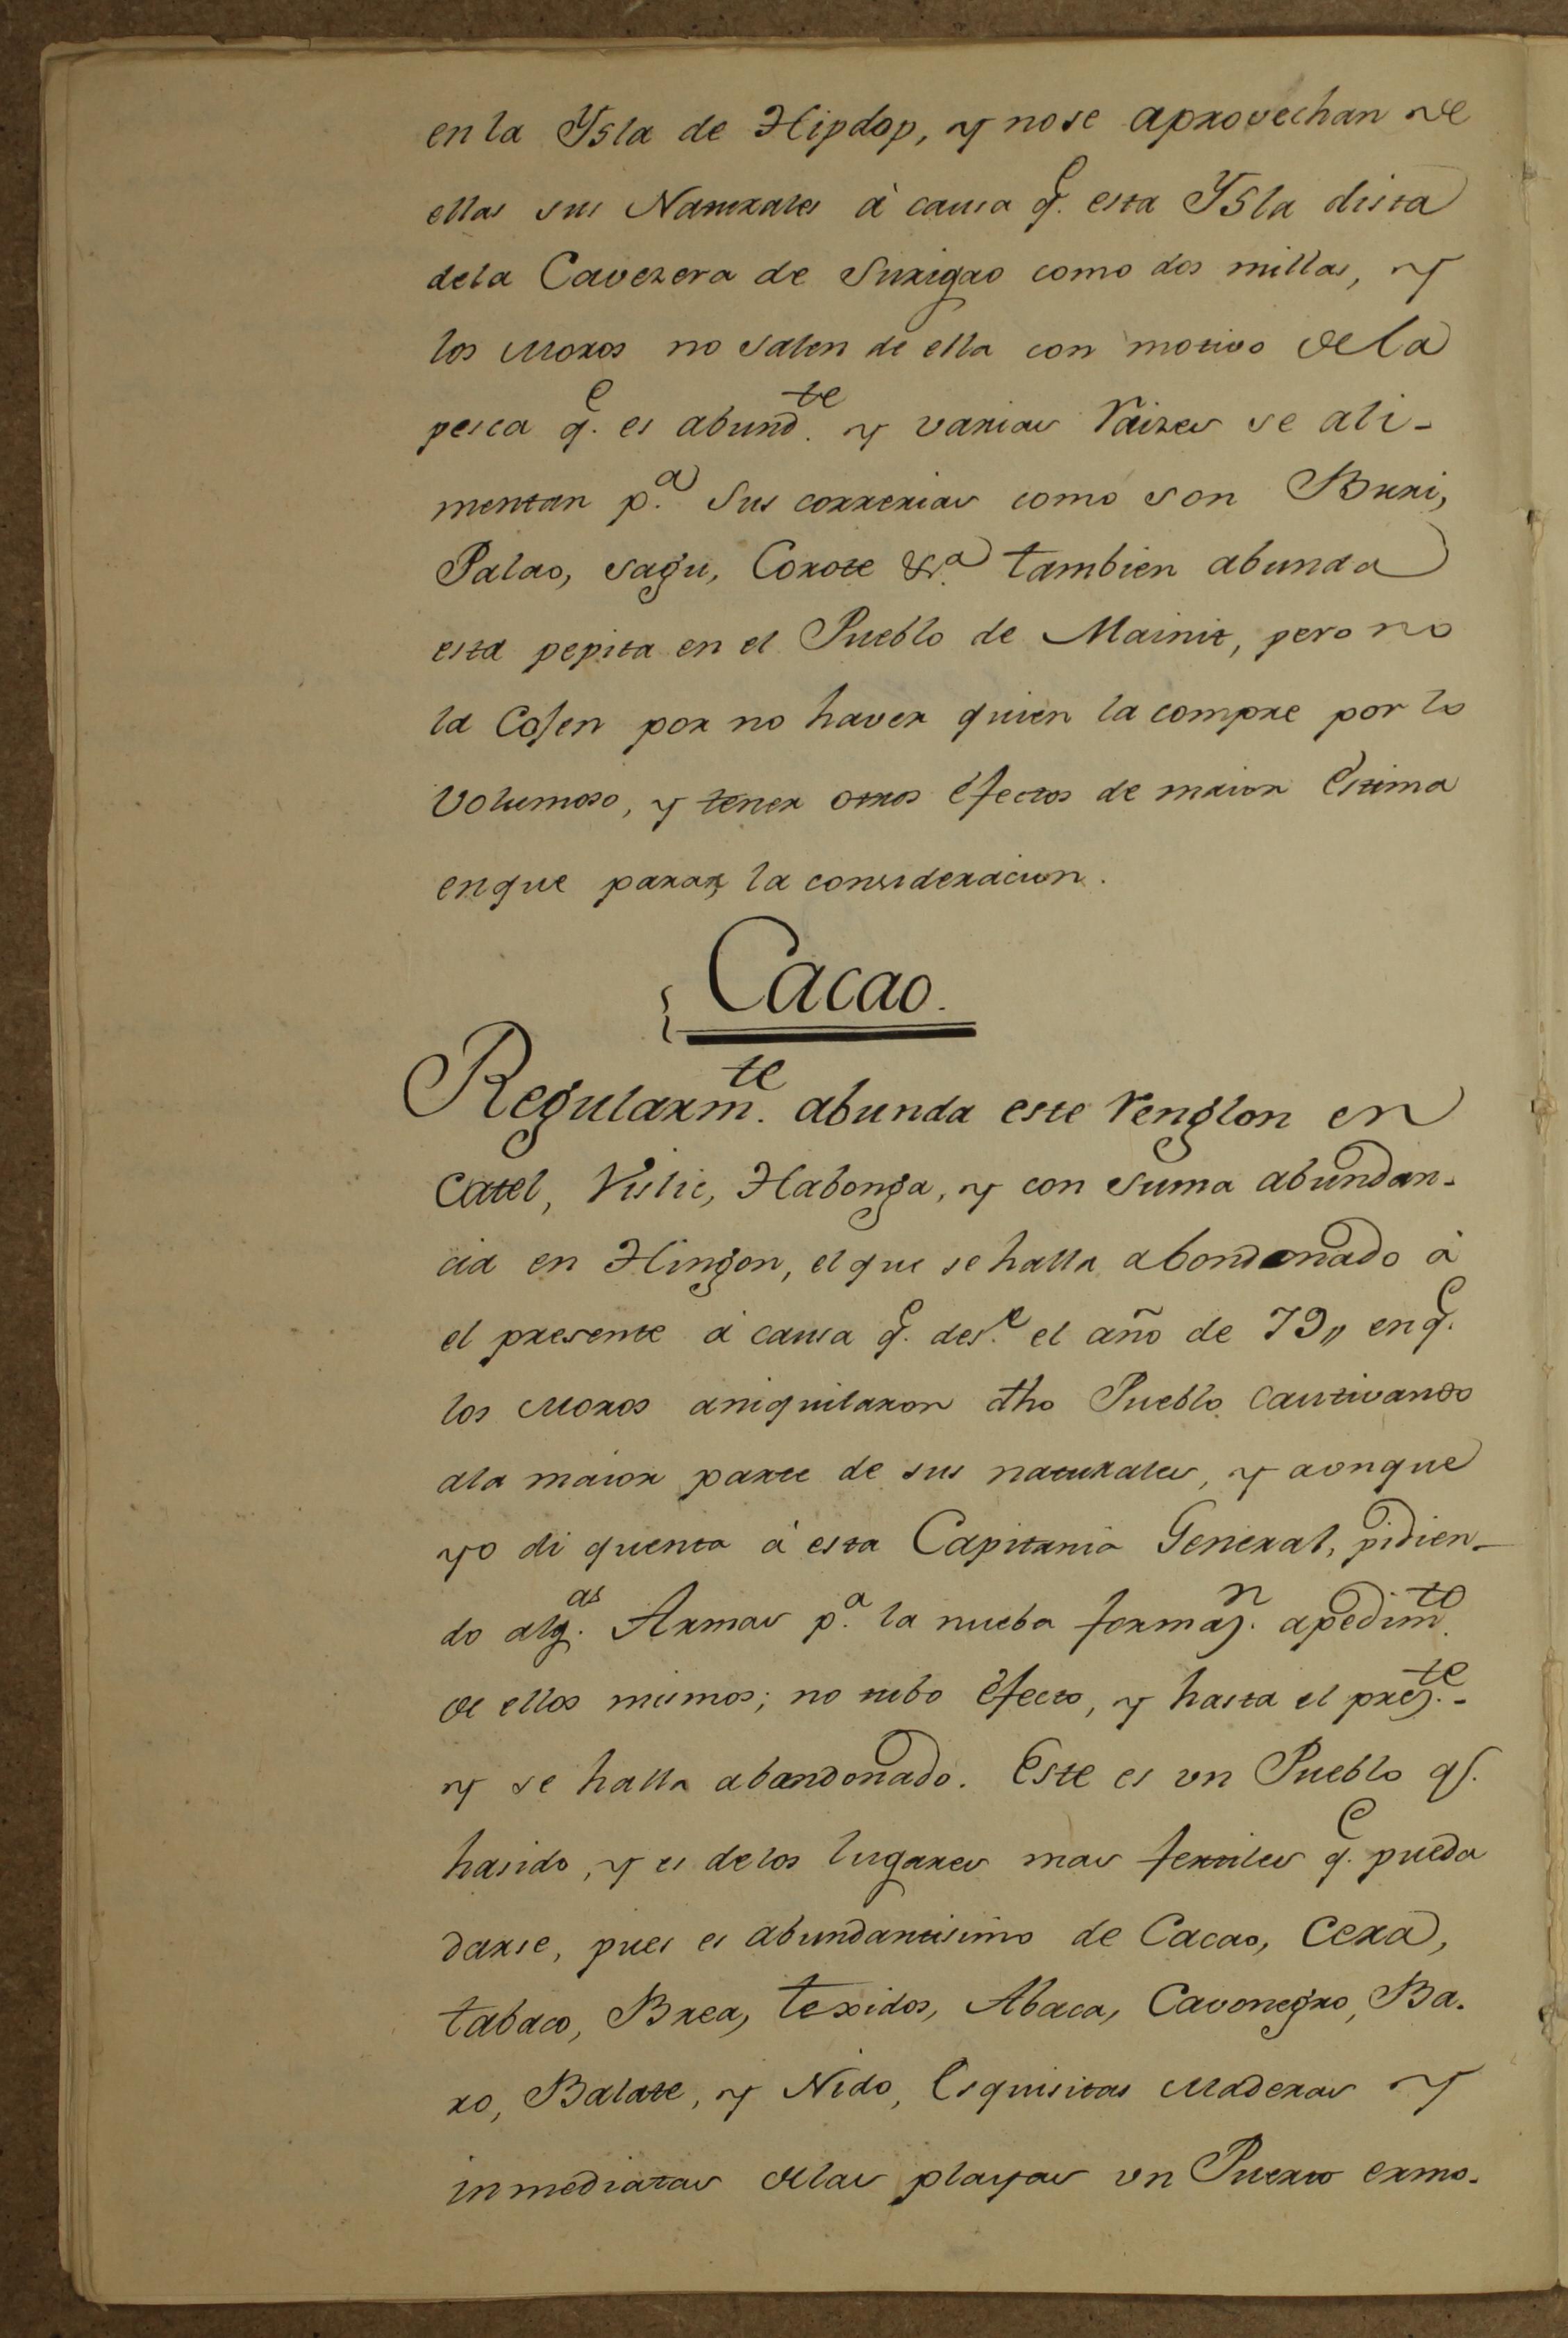 en la Ysla de Hipdop, y no se aprovechan de
ellas sus Naturales à causa q.e esta Ysla dista
dela Cavezera de Surigao como dos millas, y
los Moros no salen de ella con motivo dela
pesca q.e es abund.te y varias raizes se ali-
mentan p.a sus correrias como son Buri,
Palao, sagu, Corote &.a tambien abunda
esta pepita en el Pueblo de Mainit, pero no
la Cojen por no haver quien la compre por lo
Volumoso, y tener otros efectos de maior estima
enque parar la consideracion.
Cacao.
Regularm.te abunda este renglon en
Catel, Vislic, Habonga, y con suma abundan-
cia en Hingon, el que se halla abondonado à
el presente à causa q.e des.e el año de 79,, en q.e
los Moros aniquilaron dho Pueblo cautivando
ala maior parte de sus naturales, y aonque
yo di quenta à esta Capitania General, pidien-
do alg.as Armas p.a la nueba formaz.n apedim.to
de ellos mismos; no tubo efecto, y hasta el prez.te-
y se halla abandonado. Este es vn Pueblo q.
hasido, y es delos lugares mas fertiles q.e pueda
darse, pues es abundantisimo de Cacao, Cera,
tabaco, Brea, texidos, Abaca, Cavonegro, Ba-
ro, Balate, y Nido, Esquisitas Maderas y
inmediatas delas playas vn Puerto ermo-